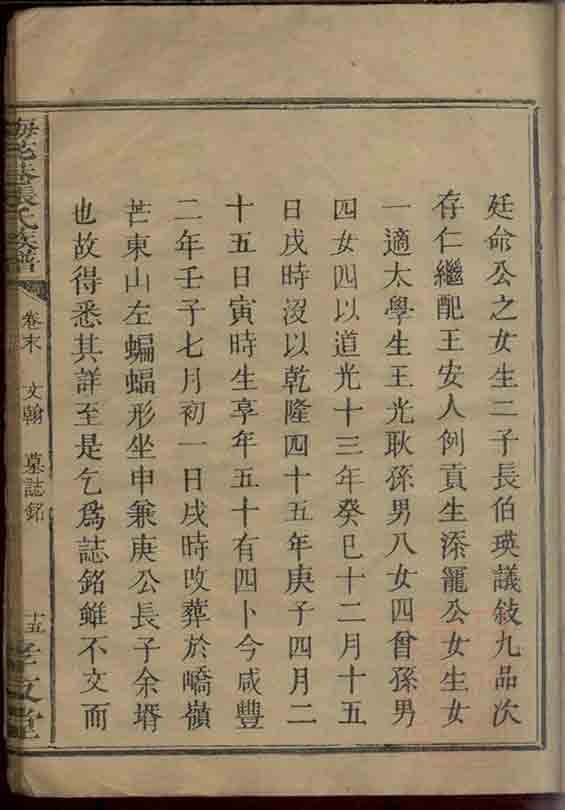 廷命公之女生二子長伯瑛議敍九品次
存仁繼配王安人例貢生添寵公女生女
一適太學生王光耿孫男八女四曾孫男
四女四以道光十三年癸巳十二月十五
日戌時沒以乾隆四十五年庚子四月二
十五日寅時生享年五十有四卜今咸豐
二年壬子七月初一日戌時改葬於嶠嶺
芒東山左蝙蝠形坐申兼庚公長子余壻
也故得悉其詳至是乞爲誌銘雖不文而
張氏族譜
卷末 文翰 墓誌銘
十五
孝友堂